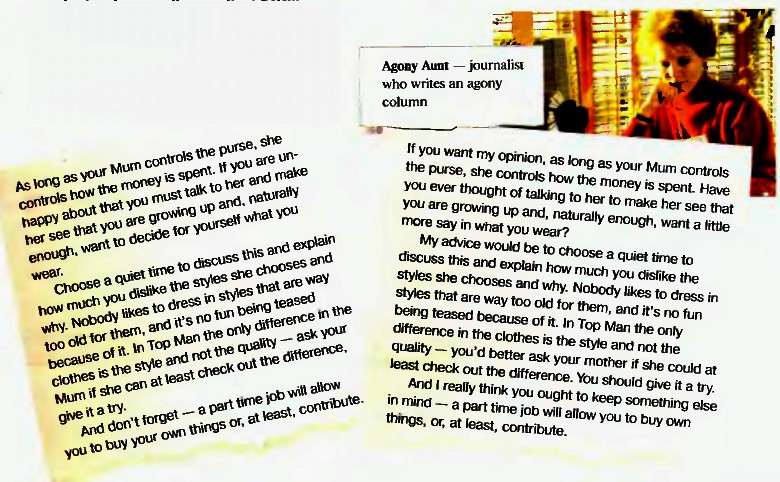 Agony Aunt — journalist
who writes an agony
column
As long as your Mum controls the purse, she
controls how the money is spent. If you are un-
happy about that you must talk to her and make
her see that you are growing up and, naturally
enough, want to decide for yourself what you
wear.
Choose a quiet time to discuss this and explain
how much you dislike the styles she chooses and
why. Nobody likes to dress in styles that are way
too old for them, and it's no fun being teased
because of it. In Top Man the only difference in the
clothes is the style and not the quality — ask your
Mum if she can at least check out the difference,
give it a try.
And don't forget — a part time job will allow
you to buy your own things or, at least, contribute.
If you want my opinion, as long as your Mum controls
the purse, she controls how the money is spent. Have
you ever thought of talking to her to make her see that
you are growing up and, naturally enough, want a little
more say in what you wear?
My advice would be to choose a quiet time to
discuss this and explain how much you dislike the
styles she chooses and why. Nobody likes to dress in
styles that are way too old for them, and it's no fun
being teased because of it. In Top Man the only
difference in the clothes is the style and not the
quality — you'd better ask your mother if she could at
least check out the difference. You should give it a try.
And I really think you ought to keep something else
in mind — a part time job will allow you to buy own
things, or, at least, contribute.